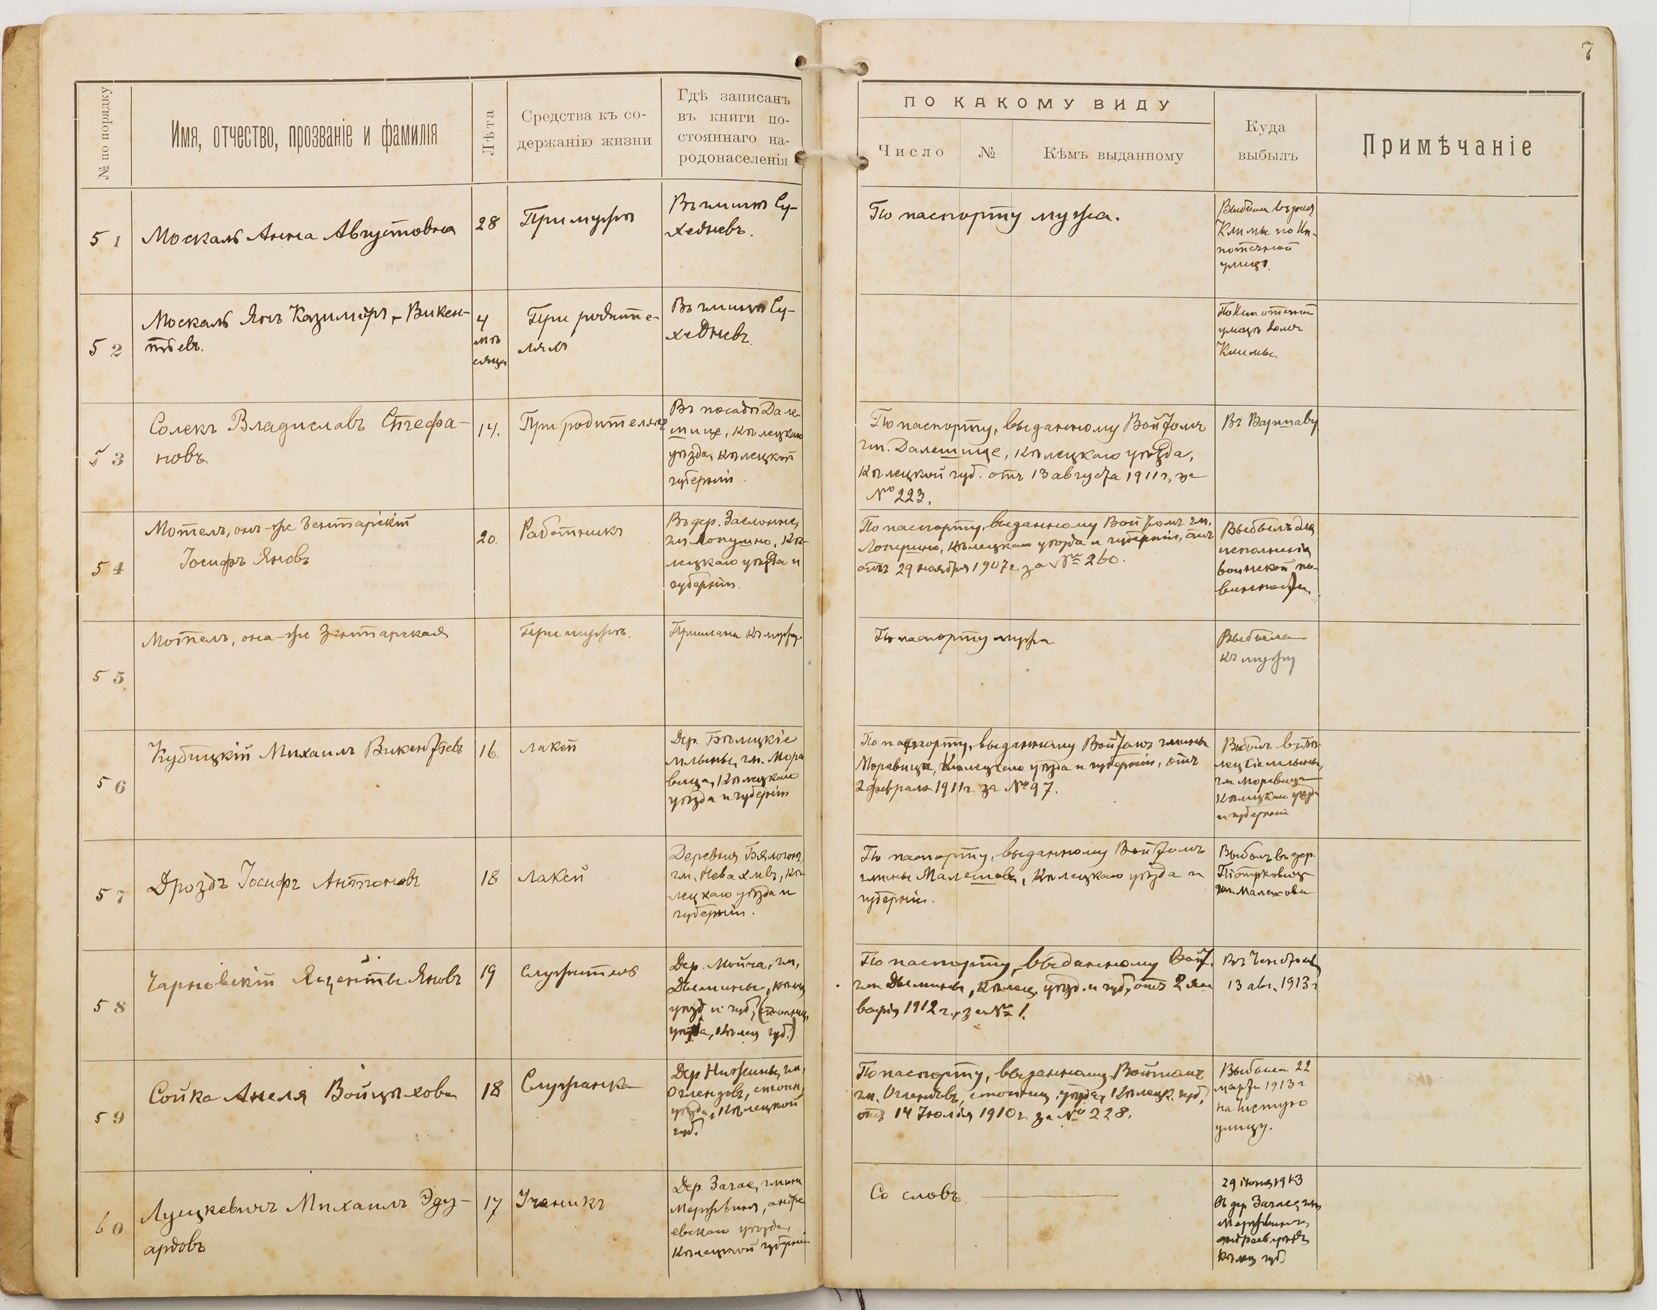 7
№ по порядку
Имя, отчество, прозваніе и фамилія
Лѣта
Средства къ со-
держанію жизни
Гдѣ записанъ
въ книги по-
стояннаго на-
родонаселенія
ПО КАКОМУ ВИДУ
Число
№
Кѣмъ выданному
Куда
выбылъ
Примѣчаніе
51
Москаль Анна Августовна
28
При мужѣ
Въ гминѣ Су-
хедневъ.
По паспорту мужа.
Выбыла въ домъ
Климы по
улицѣ.
52
Москаль Янъ Казиміръ, Викен-
тьевъ.
4
мѣ
сяца
При родите-
ляхъ
Въ гминѣ Су-
хедневъ.
улицѣ домъ
Климы
53
Солекъ Владиславъ Стефа-
новъ
14.
При родителяхъ
Въ посадѣ Дале
шице, Кѣлецкаго
уѣзда, Кѣлецкой
губерніи.
По паспорту, выданному Войтомъ
гм. Далешице, Кѣлецкаго уѣзда,
Кѣлецкой губ. отъ 13 августа 1911 г, за
№ 223.
Въ Варшаву
54
Мотель, онъ-же Зентарскій
Іосифъ Яновъ
20
Работникъ
Въ дер.
гм. Лопушно, Кѣ-
лецкаго уѣзда и
губерніи.
По паспорту, выданному Войтомъ гм.
Лопушно, Кѣлецкаго уѣзда и губерніи, отъ
отъ 29 ноября 1907 г. за № 260.
Выбылъ для
исполненія
воинской по-
винности
55
Мотель, она-же Зентарская
При мужѣ.
Приписана къ мужу.
По паспорту мужа
Выбыла
къ мужу
56
Кубицкій Михаилъ Викентьевъ
16
лакей
Дер. Бѣлецкіе
млыны, гм. Мора
вица, Кѣлецкаго
уѣзда и губерніи
По паспорту, выданному Войтомъ гмины
Моравица, Кѣлецкаго уѣзда и губерніи, отъ
2 февраля 1911 г. за № 97.
Выбылъ въ Бѣ-
лецкіе млыны,
гм. Моравица
Кѣлецкаго уѣзда
и губерніи
57
Дроздъ Іосифъ Антоновъ
18
лакей
Деревня Бялогонъ,
гм. Невахлевъ, Кѣ
лецкаго уѣзда и
губерніи.
По паспорту, выданному Войтомъ
гмины Малешова, Кѣлецкаго уѣзда и
губерніи.
Выбылъ въ дер.
Піотрковице
гм. Малешова
58
Чарновскій Яцентый Яновъ
19
служитель
Дер. Мойча, гм.
Дымины, Кѣлец
уѣзд и губ,
уѣзда, Кѣлец губ.)
По паспорту, выданному Войт.
гм. Дымины, Кѣлец. уѣзд. и губ., отъ 2 ян
варя 1912 г., за № 1.
Въ Ченстохов
13 авг. 1913 г
59
Сойка Анеля Войцѣхова
18
Служанка
Дер. гм.
Оглендовъ, стопн.
уѣзда, Кѣлецкой
губ.
По паспорту, выданному Войтомъ
гм. Оглендовъ, стопниц. уѣзда, Кѣлецк. губ,
отъ 14 Іюля 1910 г. за № 228.
Выбыла 22
марта 1913 г
на Чистую
улицу.
60
Луцкевичъ Михаилъ Эду-
ардовъ
17
Ученикъ
Дер. гмина
андре
евскаго уѣзда,
Кѣлецкой губерніи
Со словъ
29 іюня 1913
Въ дер.
андреев. уѣзда
Кѣлец губ